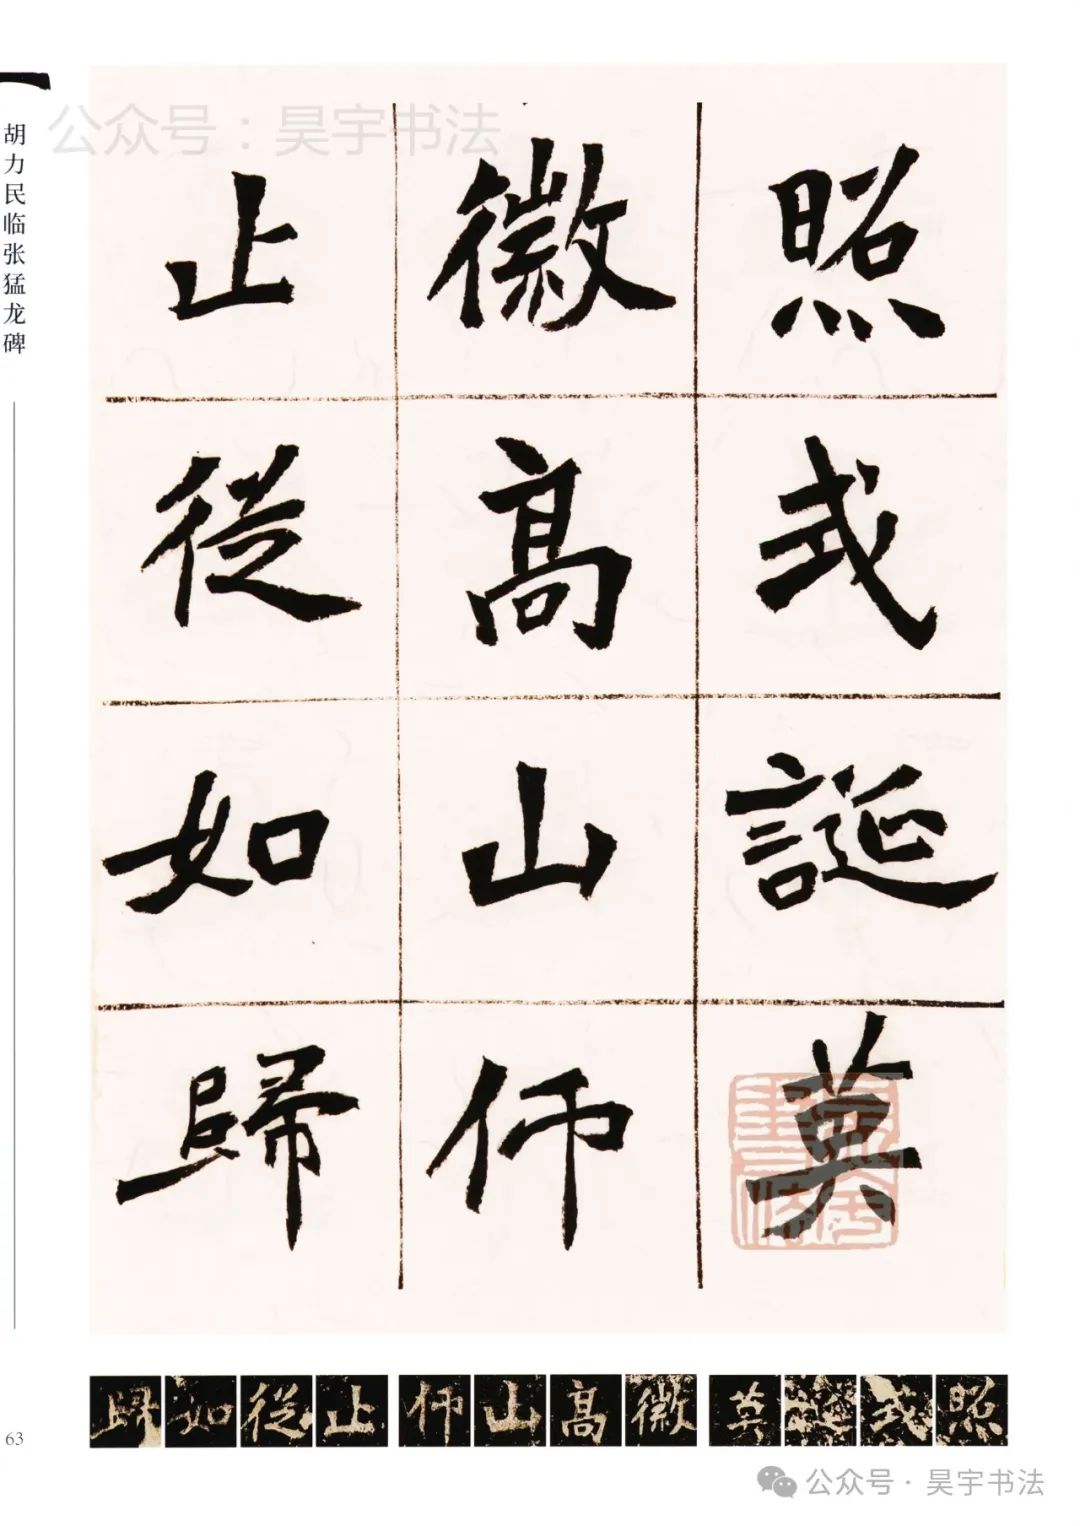 胡力民临张猛龙碑
公众号：昊宇书法
照式誕英
徽高山仰
止從如歸
歸如從止仰山高徽英誕式照
63
公众号·昊宇书法